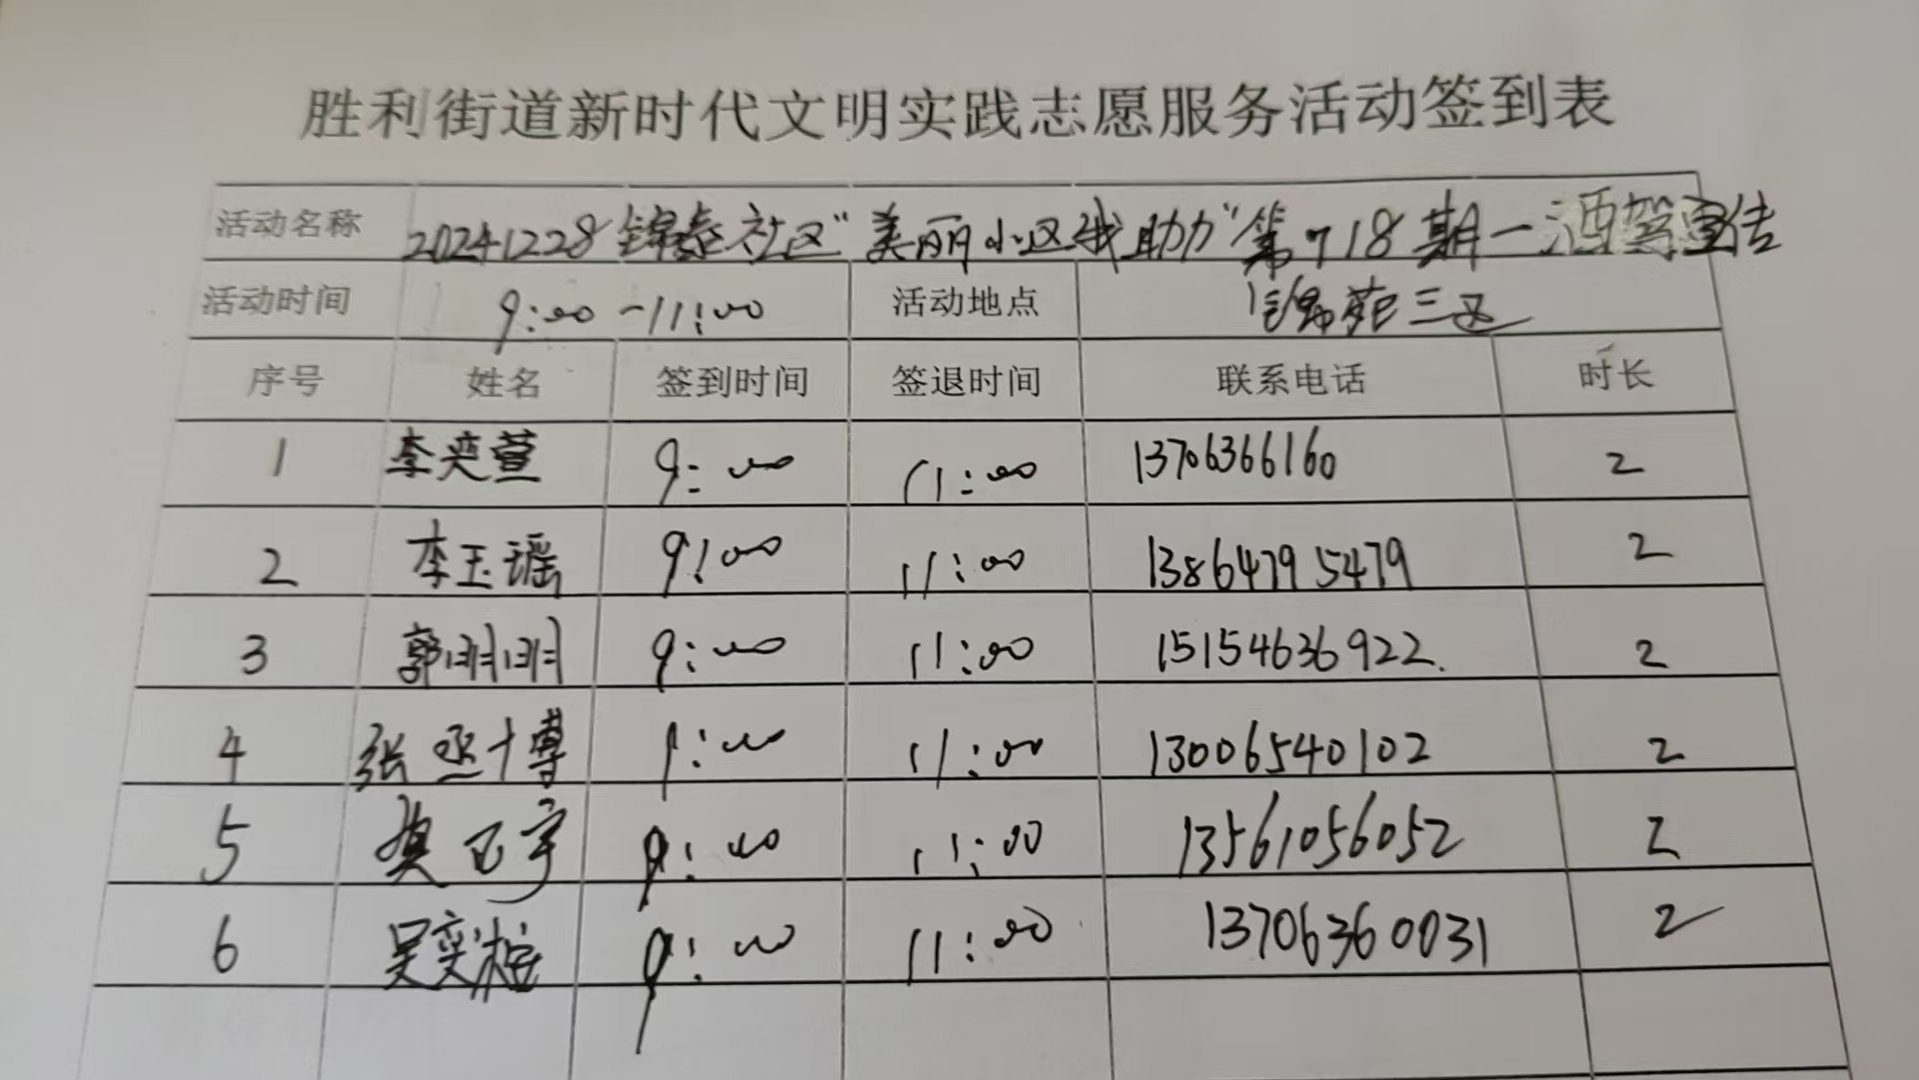 胜利街道新时代文明实践志愿服务活动签到表
活动名称 20241228锦泰社区“美丽小区我助力”第718期一酒驾宣传
活动时间 9:00-11:00 活动地点 锦苑三区
序号 姓名 签到时间 签退时间 联系电话 时长
1 李奕萱 9:00 11:00 13706366160 2
2 李玉瑶 9:00 11:00 13864795479 2
3 郭明明 9:00 11:00 15154636922. 2
4 张丞博 9:00 11:00 13006540102 2
5 9:00 11:00 13561056052 2
6 吴奕 9:00 11:00 13706360031 2